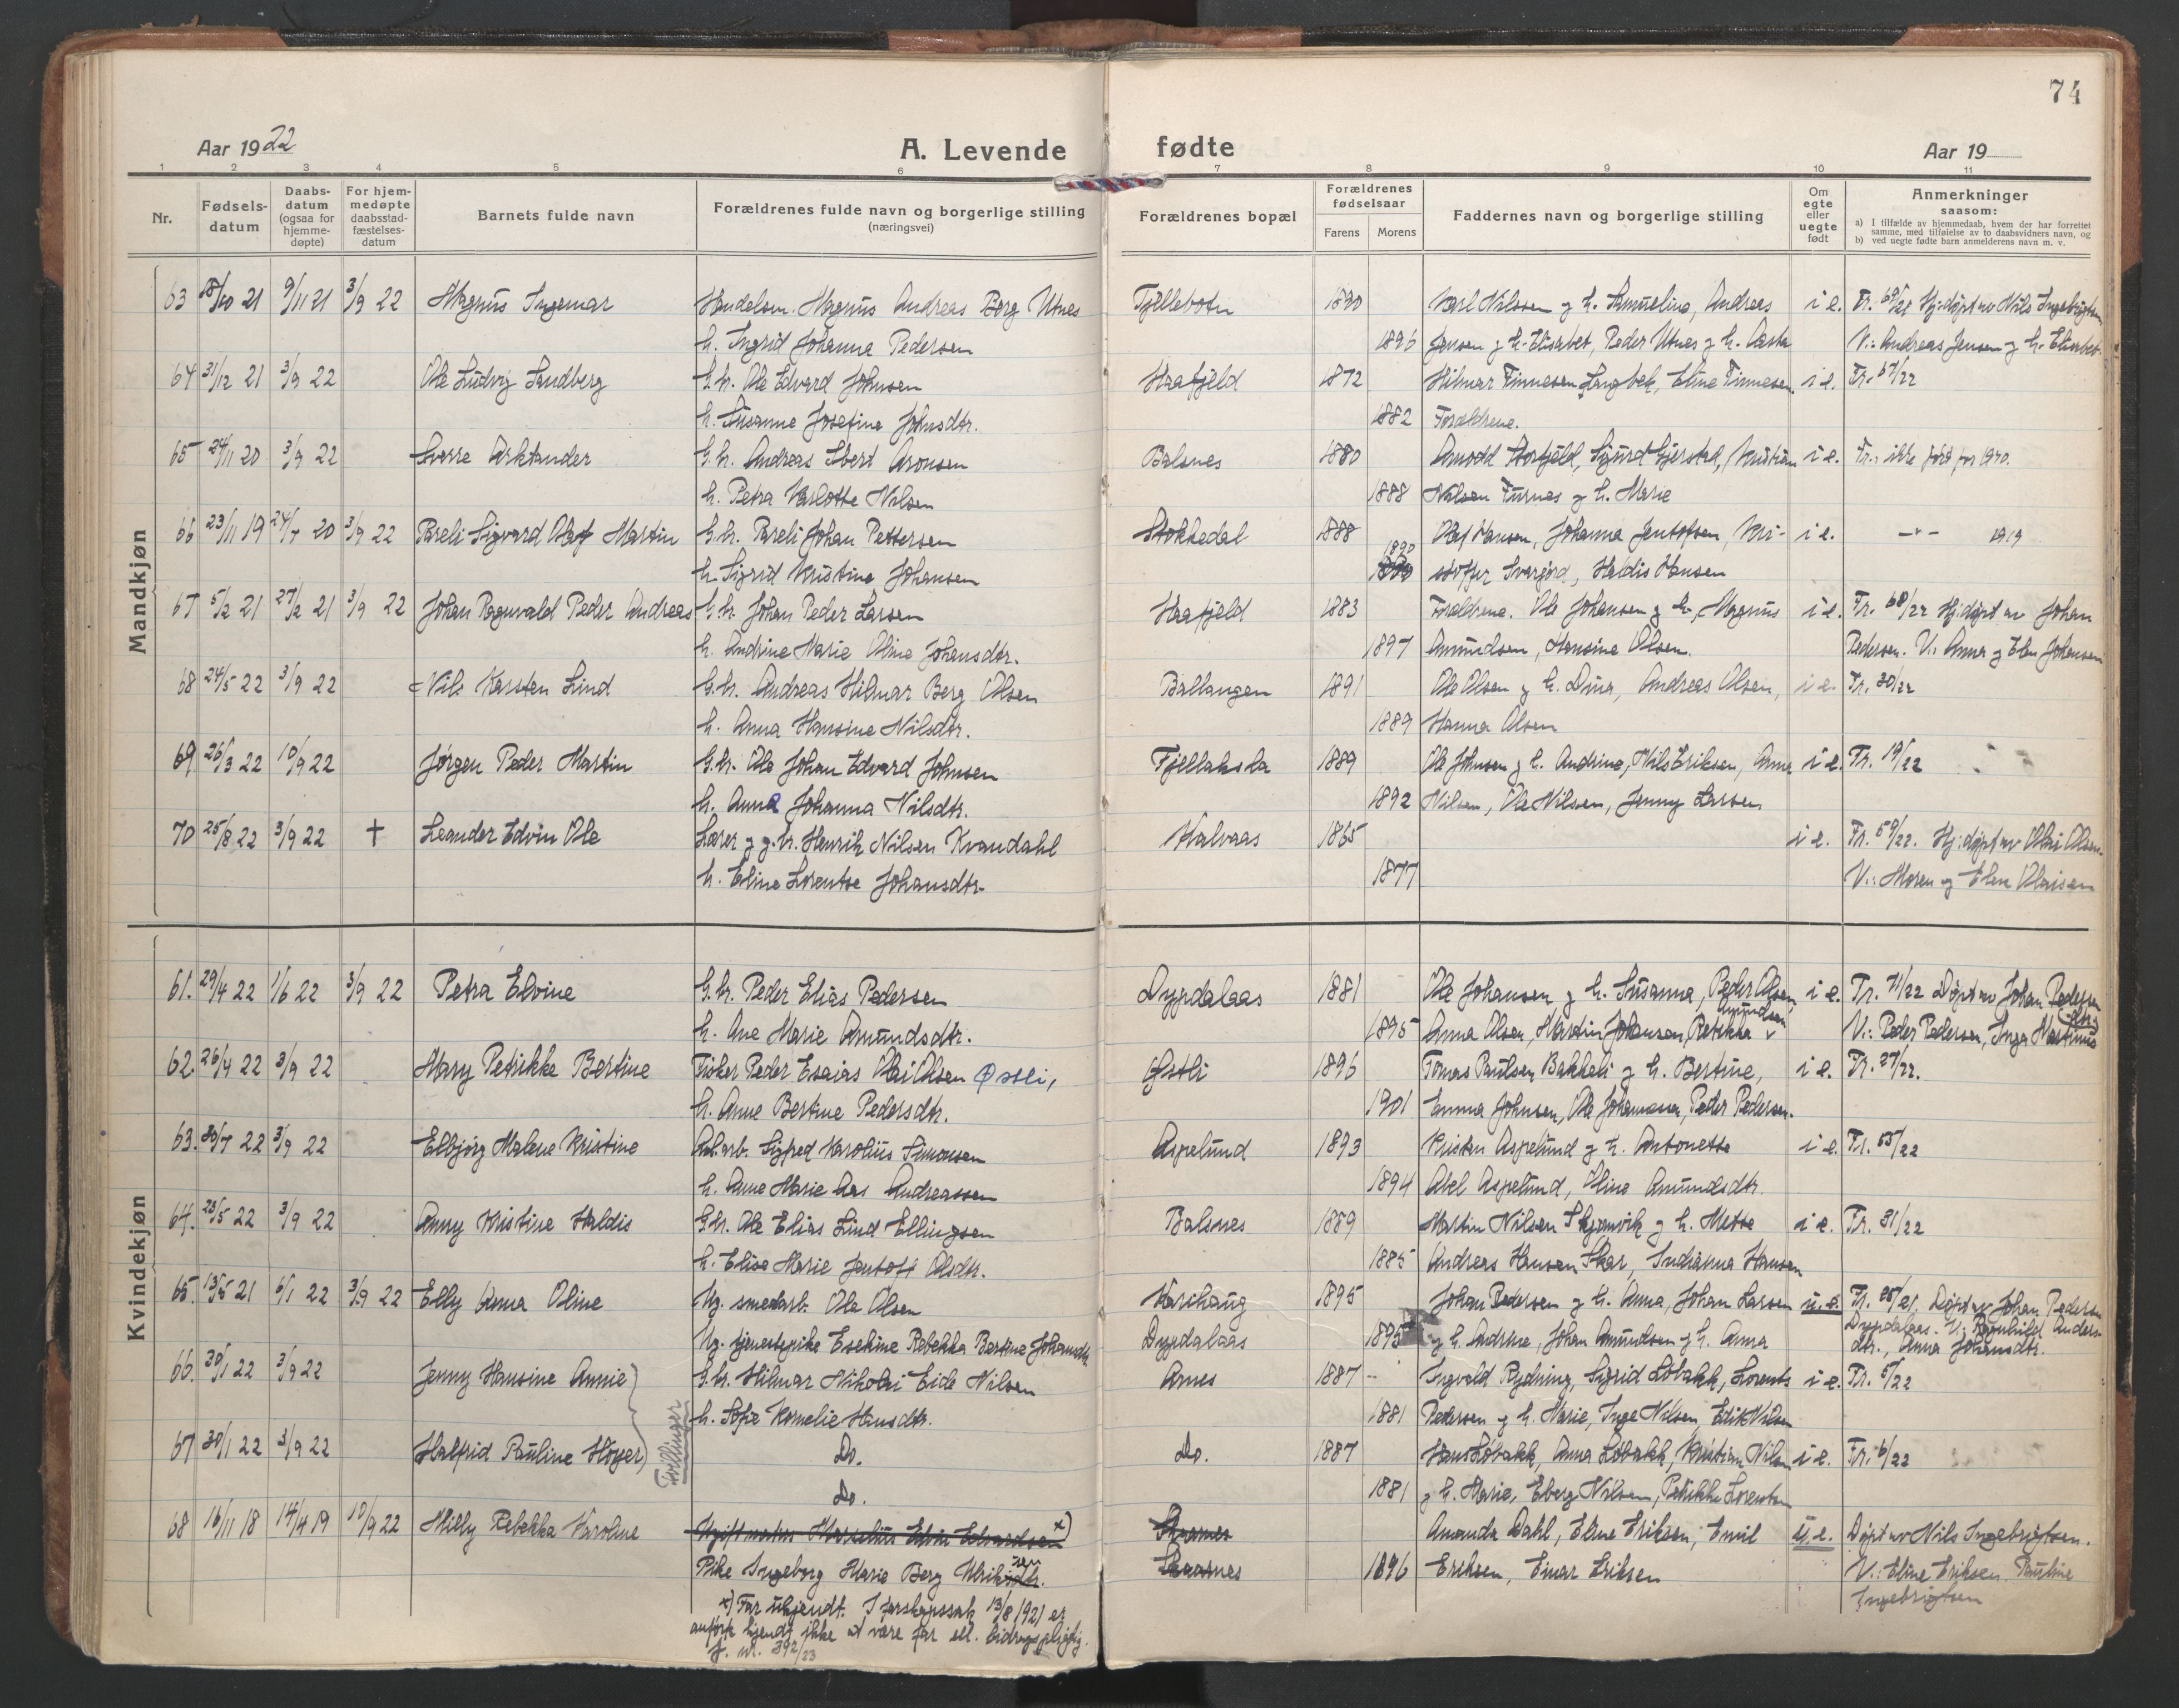 74
Aar 1922
A. Levende fødte
Aar 19
1 2 3 4 5 6 7 8 9 10 11
Nr.
Fødsels-
datum
Daabs-
datum
(ogsaa for
hjemme-
døpte)
For hjem-
medøpte
daabsstad-
fæstelses-
datum
Barnets fulde navn
Forældrenes fulde navn og borgerlige stilling
(næringsvei)
Forældrenes bopæl
Forældrenes
fødselsaar
Farens Morens
Faddernes navn og borgerlige stilling
Om
egte
eller
uegte
født
Anmerkninger
saasom:
a) I tilfælde av hjemmedaab, hvem der har forrettet
samme, med tilføielse av to daabsvidners navn, og
b) ved uegte fødte barn anmelderens navn m. v.
Mandkjøn
63 18/10 21 9/11 21 3/9 22 Magnus Ingemar Handelsm. Magnus Andreas Berg Utnes Fjellebotn 1890 Karl Nilssen g h. Samueline, Andreas i e. Fr. 69/21 Hj:døpt av Nils Ingebrigtsen
h. Ingrid Johanna Pedersen 1896 Jensen g h. Elisabet, Peder Utnes g h. Aasta V.: Andreas Jensen g h. Elisabet
64 31/12 21 3/9 22 Ole Ludvig Sandberg G.br. Ole Edvard Johnsen Haafjeld 1872 Hilmar Finnesen Langbek, Eline Finnesen i e. Fr. 67/22
h. Susanne Josefine Johnsdtr. 1882 Forældrene.
65 24/11 20 3/9 22 Sverre Arktander G.br. Andreas Ebert Aronsen Balsnes 1880 Amodd Storfjeld, Sigurd Gjerstad, Kristian i e. Fr.: ikke ført for 1920.
h. Petra Karlotte Nilsen 1888 Nilsen Furnes g h. Marie
66 23/11 19 24/7 20 3/9 22 Pareli Sigvard Olaf Martin G.br. Pareli Johan Pettersen Stokkedal 1888 Olaf Hansen, Johanna Jentoftsen, Kri- i e. —"— 1919
h. Sigrid Kristine Johansen 1890 stoffer Svargård, Haldis Hansen
67 5/2 21 27/2 21 3/9 22 Johan Ragnvald Peder Andreas G.br. Johan Peder Larsen Haafjeld 1883 Forældrene. Ole Johansen g h., Magnus i e. Fr. 68/22 Hj:døpt av Johan
h. Andrine Marie Oline Johansdtr. 1897 Amundsen, Hansine Olsen. Pedersen. V.: Anna g Elen Johansen
68 24/5 22 3/9 22 Nils Karsten Lind G.br. Andreas Hilmar Berg Olsen Ballangen 1891 Ole Olsen g h. Dina, Andreas Olsen, i e. Fr. 30/22
h. Anna Hansine Nilsdtr. 1889 Hanna Olsen
69 26/3 22 10/9 22 Jørgen Peder Martin G.br. Ole Johan Edvard Johnsen Fjellaksla 1889 Ole Johnsen g h. Andrine, Nils Eriksen, Anna i e. Fr. 19/22
h. Anna Johanna Nilsdtr. 1892 Nilsen, Ole Nilsen, Jenny Larsen
70 25/8 22 3/9 22 † Leander Edvin Ole Lærer g g.br. Henrik Nilsen Kvandahl Kalvaas 1865 i e. Fr. 59/22. Hj:døpt av Olai Olsen
h. Eline Lorentse Johansdtr. 1877 V.: Moren og Elen Olaisen
Kvindekjøn
61. 29/4 22 1/6 22 3/9 22 Petra Elvine G.br. Peder Elias Pedersen Dypdalaas 1881 Ole Johansen g h. Susanna, Peder Olsen, i e. Fr. 71/22 Døpt av Johan Pedersen
h. Ane Marie Amundsdtr. 1895 Anna Olsen, Martin Johansen, Rebekka Amundsen V.: Peder Pedersen, Inga Martinus
62. 26/4 22 3/9 22 Mary Petrikke Bertine Fisker Peder Esaias Olai Olsen Østli, Østli 1896 Tomas Paulsen Bakheli g h. Bertine, i e. Fr. 27/22.
h. Anne Bertine Pedersdtr. 1901 Emma Johnsen, Ole Johansen, Peder Pedersen.
63. 30/7 22 3/9 22 Elbjørg Malene Kristine Anl.arb. Sigfred Karolius Simonsen Aspelund 1893 Kristen Aspelund g h. Antonette i e. Fr. 55/22
h. Anne Marie Aas Andreassen 1894 Abel Aspelund, Oline Amundsdtr.
64. 28/5 22 3/9 22 Anny Kristine Haldis G.br. Ole Elias Lind Ellingsen Balsnes 1889 Martin Nilsen Skjomvik g h. Mette i e. Fr. 31/22
h. Elise Marie Jentoft Olsdtr. 1885 Andreas Hansen Skar, Indianna Hansen
65. 13/5 21 6/1 22 3/9 22 Elly Anna Oline Ug. smedarb. Ole Olsen Karihaug 1895 Johan Pedersen g h. Anna, Johan Larsen u. e. Fr. 25/21. Døpt av Johan Pedersen
Ug. tjenestepike Esekine Rebekka Bertine Johansdtr Dypdalaas 1895 g h. Andrine, Johan Amundsen g h. Anna Dypdalaas. V.: Ragnhild Anders-
dtr., Anna Johansdtr.
66. 30/1 22 3/9 22 Jenny Hansine Annie G.br. Hilmar Nikolai Eide Nilsen Arnes 1887 Ingvald Rydning, Sigrid Løbakk, Lorents i e. Fr. 5/22
Tvillinger
h. Sofie Kornelie Hansdtr. 1881 Pedersen g h. Marie, Inge Nilsen, Edit Nilsen
67 30/1 22 3/9 22 Halfrid Pauline Høyer Do. Do. 1887 Hans Løbakk, Anna Løbakk, Kristian Nilsen i e. Fr. 6/22
Do. 1881 g h. Marie, Eberg Nilsen, Petrikke Lorentsen
68 16/11 18 14/4 19 10/9 22 Milly Rebekka Karoline Ugift Edvardsen x) Skarnes Amanda Dahl, Eline Eriksen, Emil u. e. Døpt av Nils Ingebrigtsen.
Pike Ingeborg Marie Berg Ulriksen Skarnes 1896 Eriksen, Einar Eriksen V.: Eline Eriksen. Pauline
Ingebrigtsen
x) Far ukjendt. I farskapssak 13/8 1921 er
anførte kjendt ikke at være far ell. bidragspligtig.
J. nr. 392/23